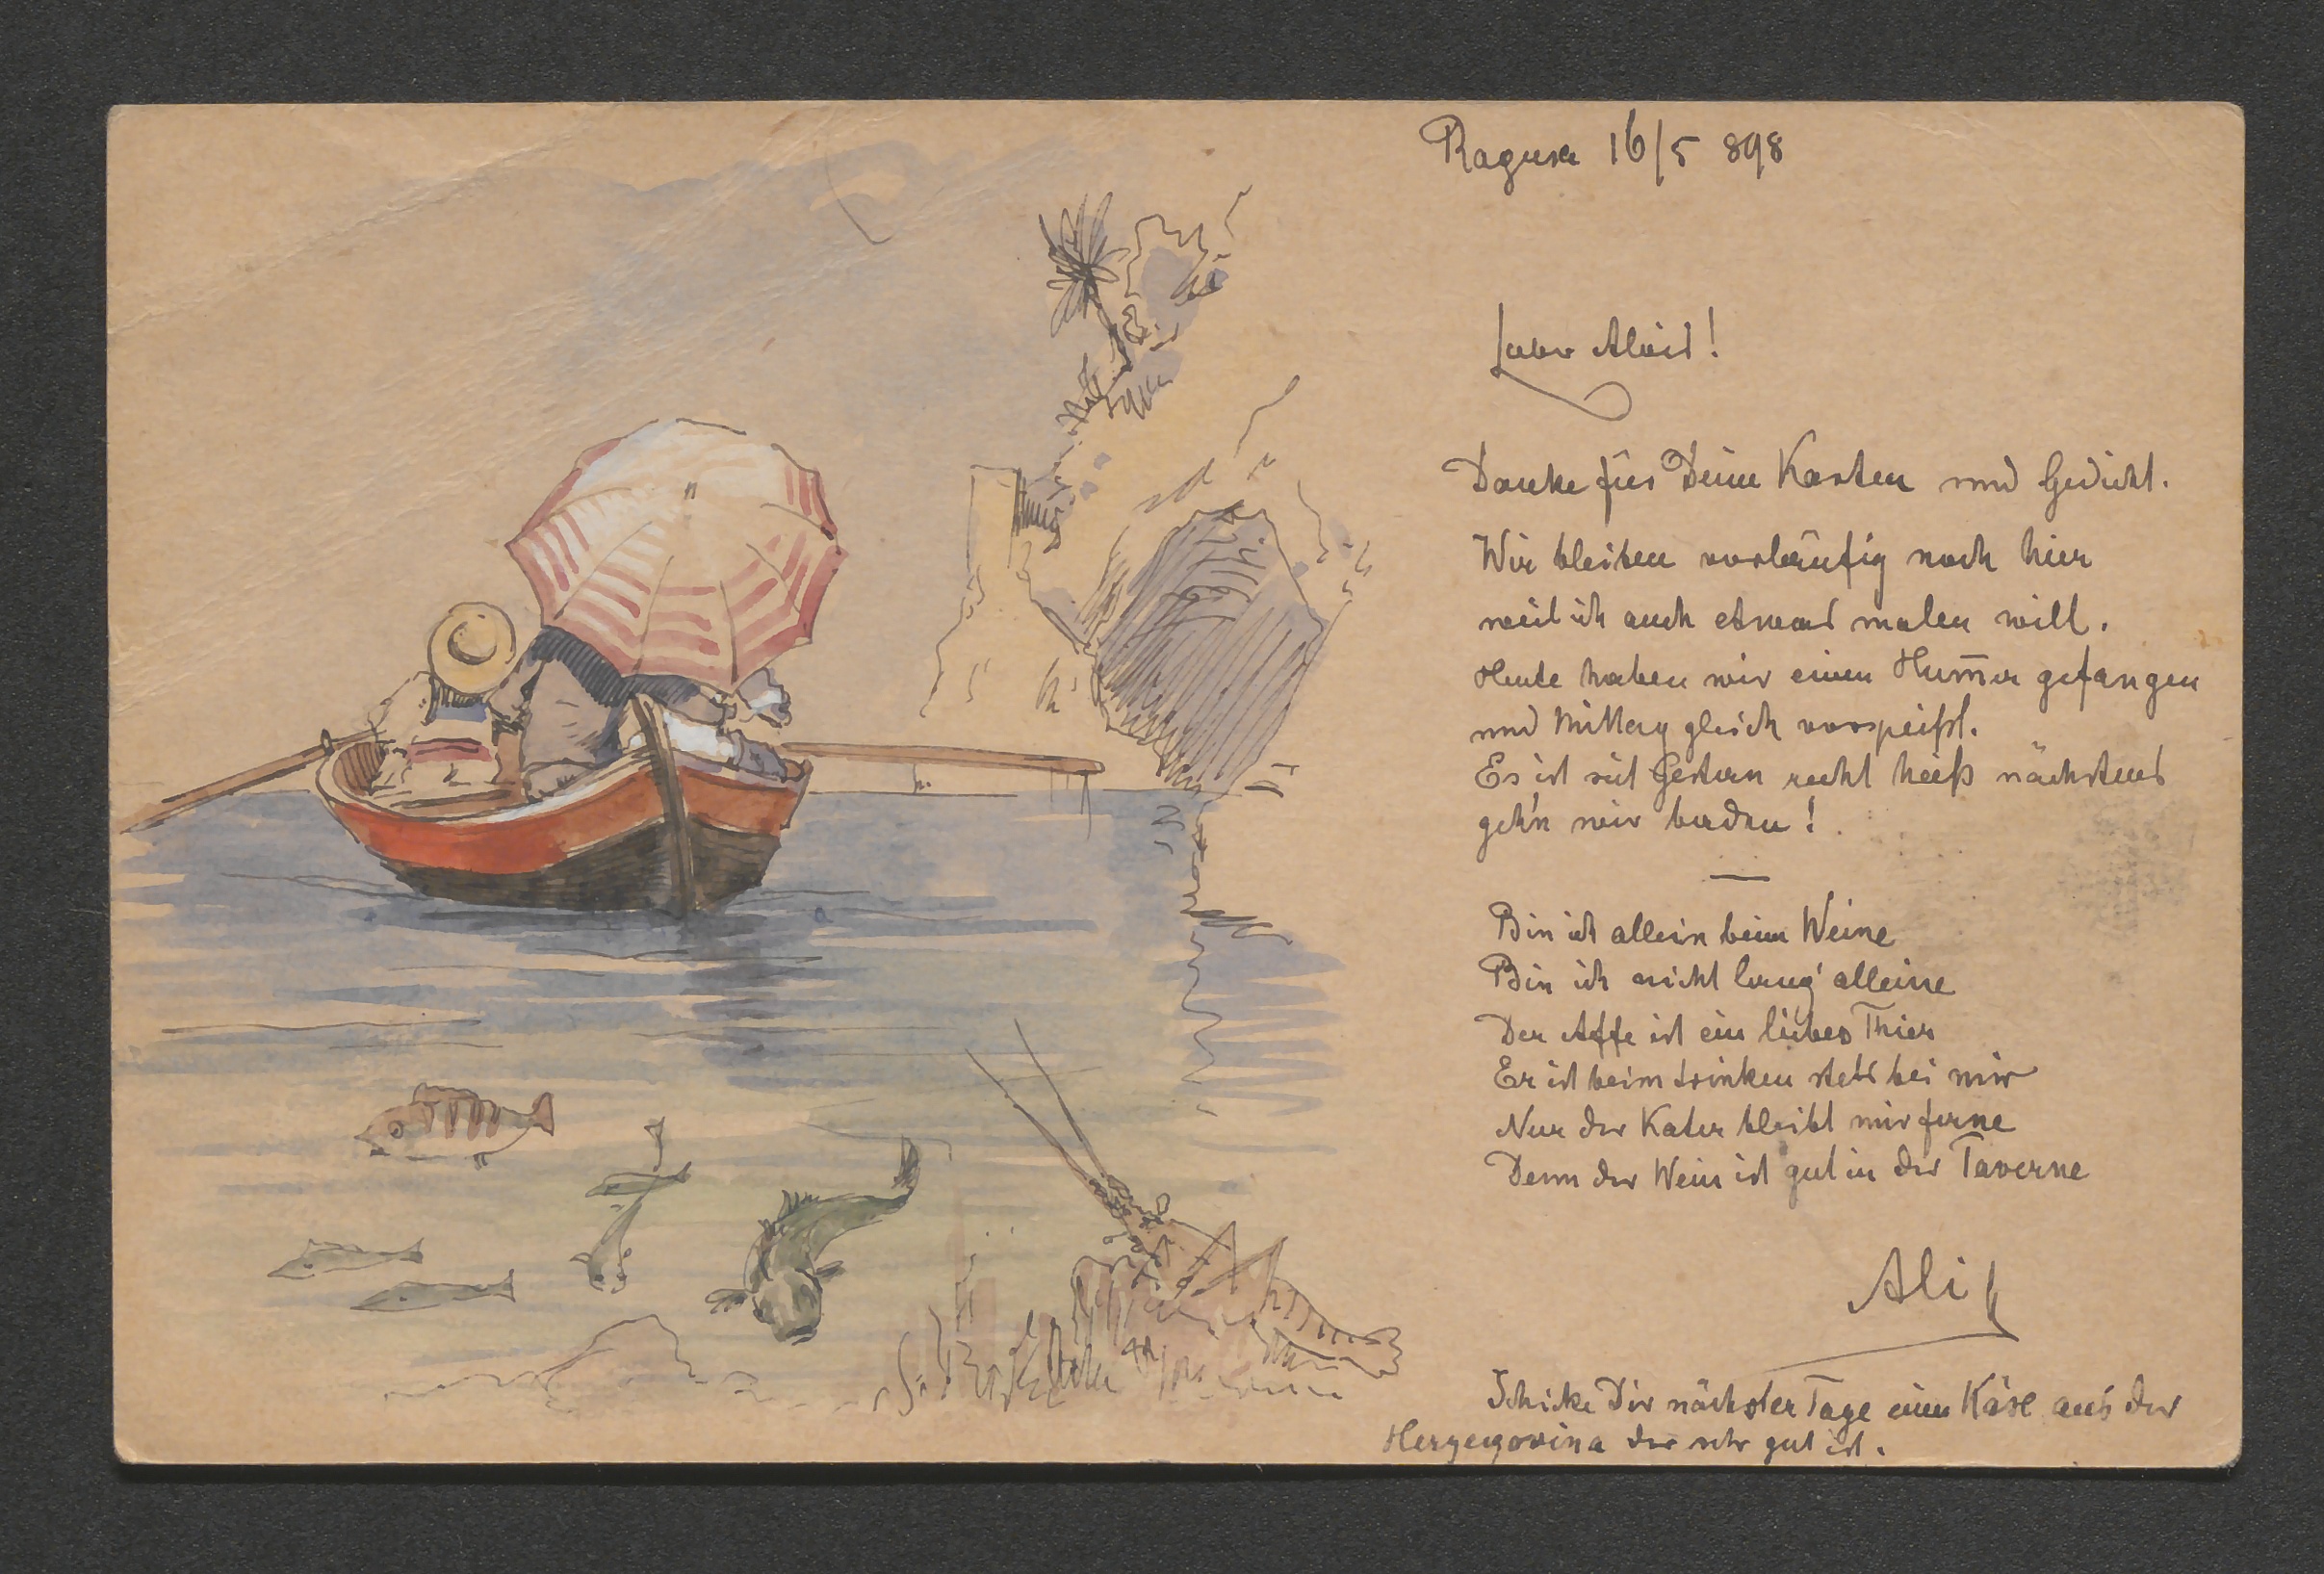 Ragusa 16/5 898
Lieber Alois!
Danke für Deine Karten und Gedicht.
Wir bleiben vorläufig noch hier
weil ich auch etwas malen will.
Heute haben wir einen Hum̄er gefangen
und Mittag gleich verspeißt.
Es ist seit Gestern recht heiß nächstens
geh'n wir baden!
—
Bin ich allein beim Weine
Bin ich nicht lang' alleine
Der Affe ist ein liebes Thier
Er ist beim trinken stets bei mir
Nur der Kater bleibt mir ferne
Denn der Wein ist gut in der Taverne
Ali
Schicke Dir nächster Tage einen Käse aus der
Herzegovina der sehr gut ist.